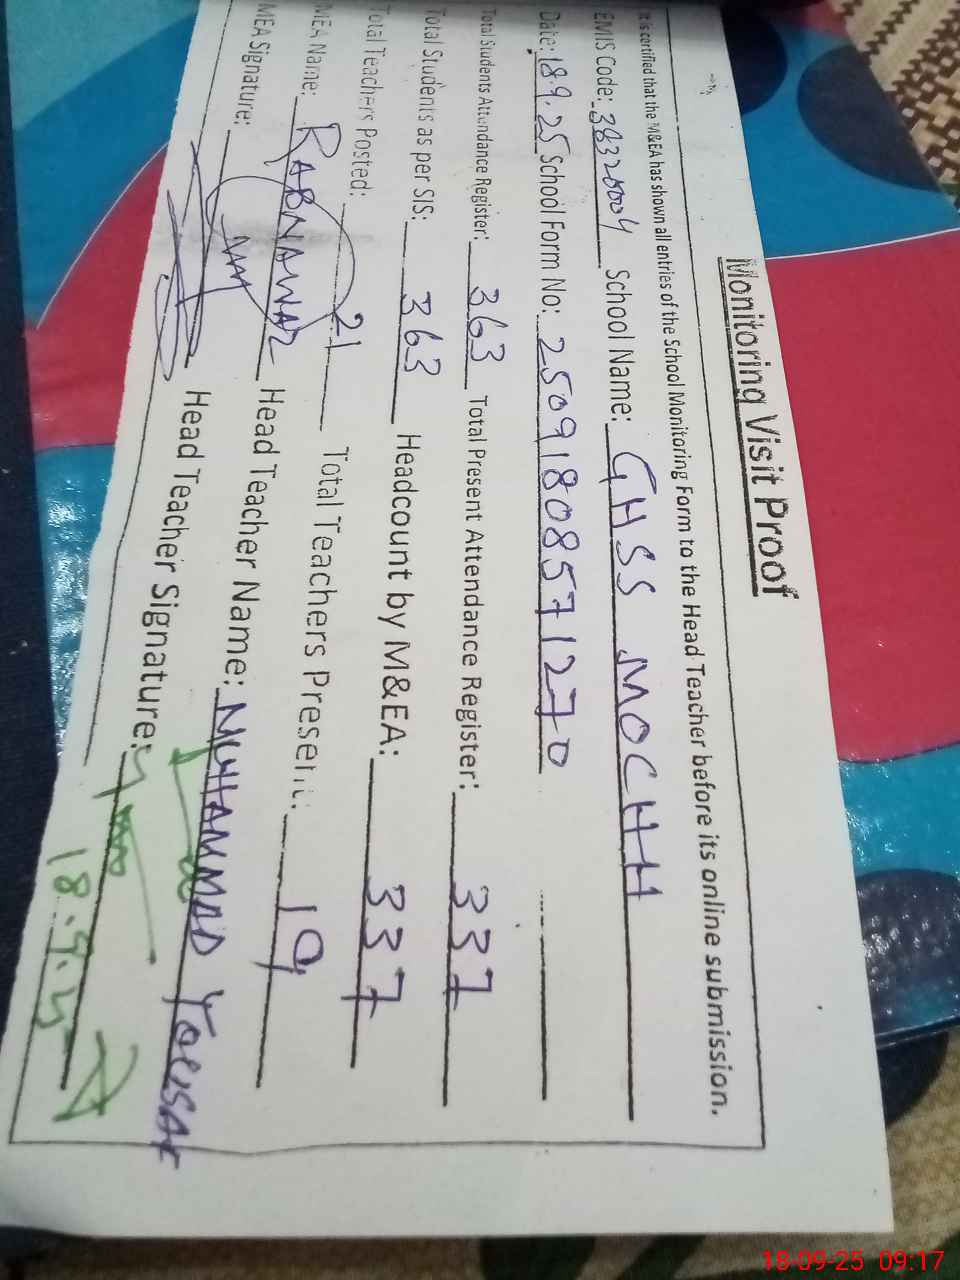 Monitoring Visit Proof
It is certified that the M&EA has shown all entries of the School Monitoring Form to the Head Teacher before its online submission.
EMIS Code: 38320004 School Name: GHSS MOCHH
Date: 18.9.25 School Form No: 25091808571270
Total Students Attendance Register: 363 Total Present Attendance Register: 337
Total Students as per SIS: 363 Headcount by M&EA: 337
Total Teachers Posted: 21 Total Teachers Present: 19
MEA Name: RABNAWAZ Head Teacher Name: MUHAMMAD YOUSAF
MEA Signature: Head Teacher Signature:
18.9.25
18-09-25 09:17